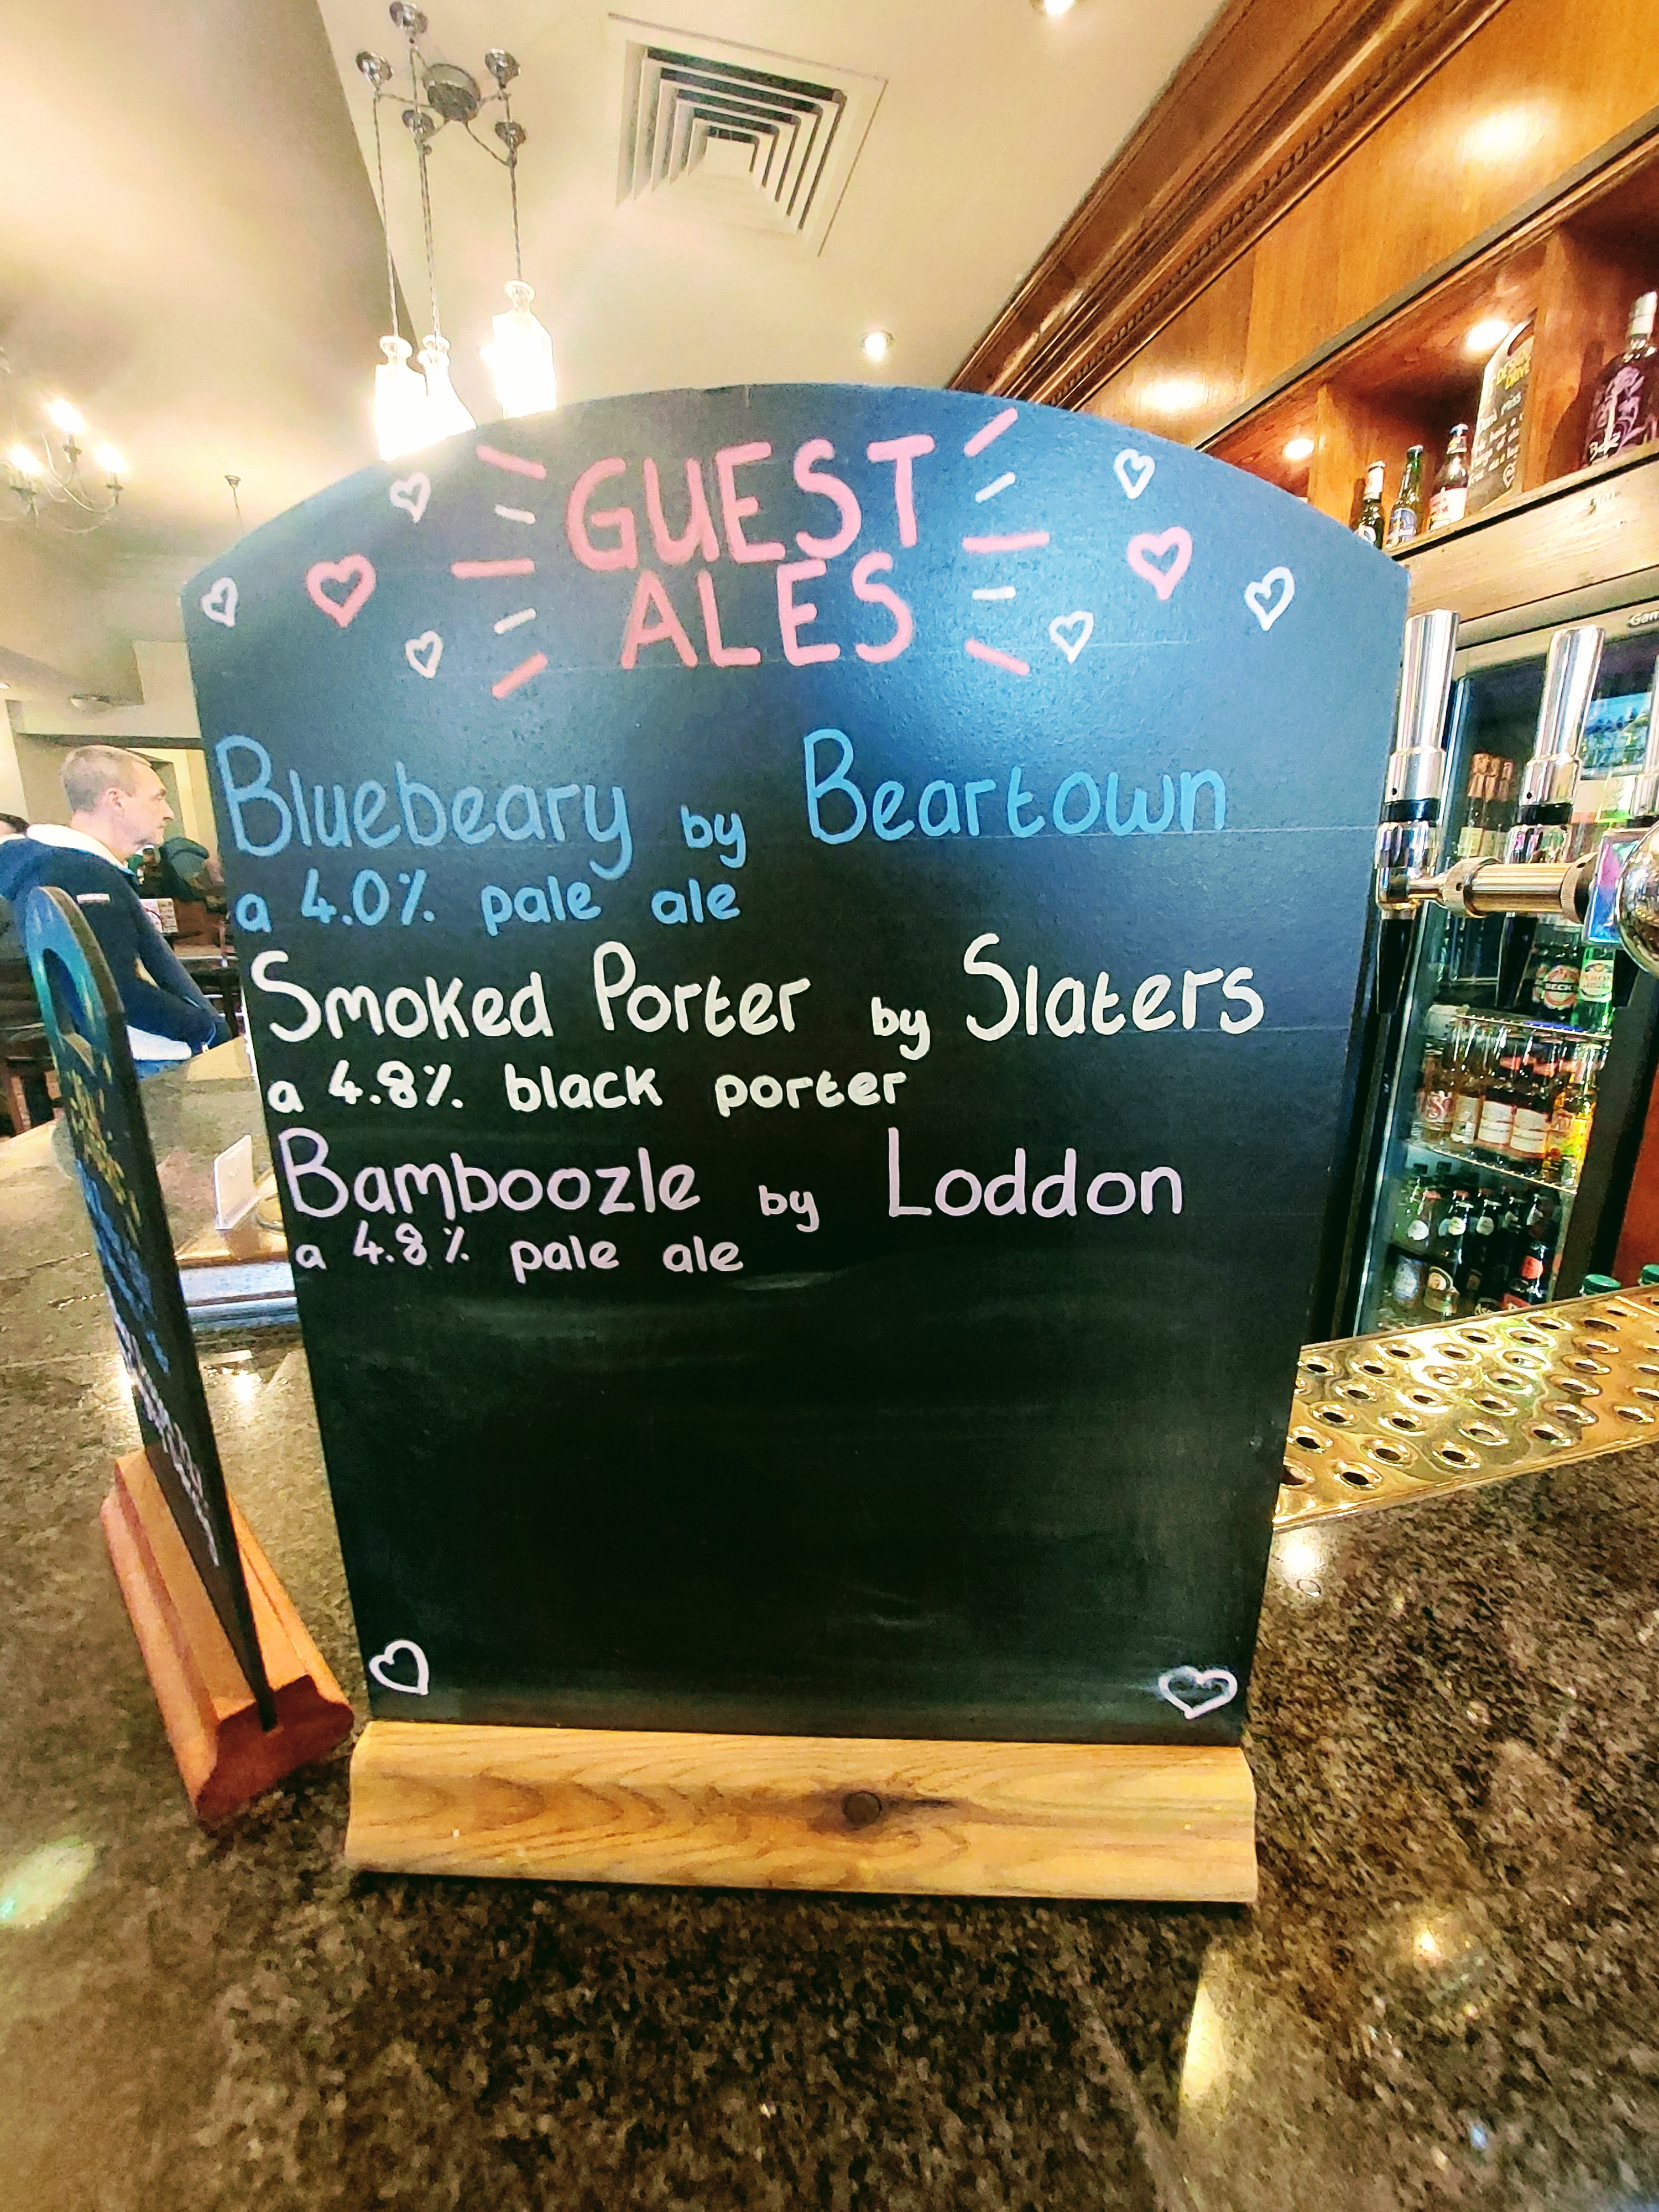 GUEST
ALES
Bluebeary by Beartown
a 4.0% pale ale
Smoked Porter by Slaters
a 4.8% black porter
Bamboozle by Loddon
a 4.8% pale ale
BECK